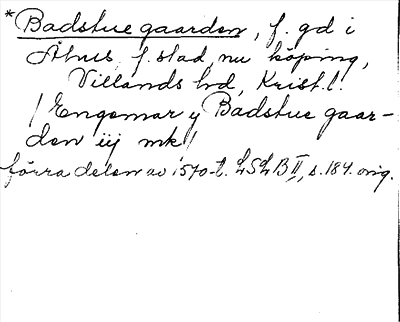 *Badstue gaarden, f. gd i
Åhus, f. stad, nu köping,
Villands hd, Krist. l.
/Engemar y Badstue gaar-
den iij mk/
förra delen av 1570-t. LSLB II, s. 184. orig.